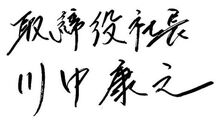 取締役社長
川中康之